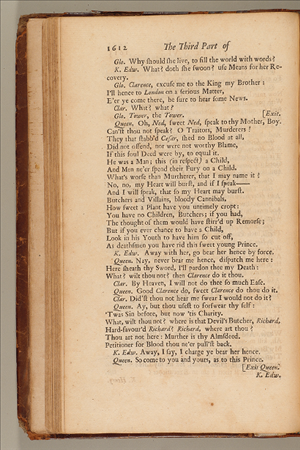 1612 The Third Part of
Glo. Why should she live, to fill the world with words?
K. Edw. What? doth she swoon? use Means for her Re-
covery.
Glo. Clarence, excuse me to the King my Brother:
I'll hence to London on a serious Matter,
E'er ye come there, be sure to hear some News.
Clar. What? what?
Glo. Tower, the Tower. [Exit.
Queen. Oh, Ned, sweet Ned, speak to thy Mother, Boy.
Can'st thou not speak? O Traitors, Murderers!
They that stabb'd Cæsar, shed no Blood at all,
Did not offend, nor were not worthy Blame,
If this foul Deed were by, to equal it.
He was a Man; this (in respect) a Child,
And Men ne'er spend their Fury on a Child.
What's worse than Murtherer, that I may name it?
No, no, my Heart will burst, and if I speak——
And I will speak, that so my Heart may burst.
Butchers and Villains, bloody Cannibals,
How sweet a Plant have you untimely cropt:
You have no Children, Butchers; if you had,
The thought of them would have stirr'd up Remorse;
But if you ever chance to have a Child,
Look in his Youth to have him so cut off,
As deathsmen you have rid this sweet young Prince.
K. Edw. Away with her, go bear her hence by force.
Queen. Nay, never bear me hence, dispatch me here:
Here sheath thy Sword, I'll pardon thee my Death:
What? wilt thou not? then Clarence do it thou.
Clar. By Heaven, I will not do thee so much Ease.
Queen. Good Clarence do, sweet Clarence do thou do it.
Clar. Did'st thou not hear me swear I would not do it?
Queen. Ay, but thou usest to forswear thy self:
'Twas Sin before, but now 'tis Charity.
What, wilt thou not? where is that Devil's Butcher, Richard,
Hard-favour'd Richard? Richard, where art thou?
Thou art not here: Murther is thy Almsdeed,
Petitioner for Blood thou ne'er pull'st back.
K. Edw. Away, I say, I charge ye bear her hence.
Queen. So come to you and yours, as to this Prince.
[Exit Queen.
K. Edw.